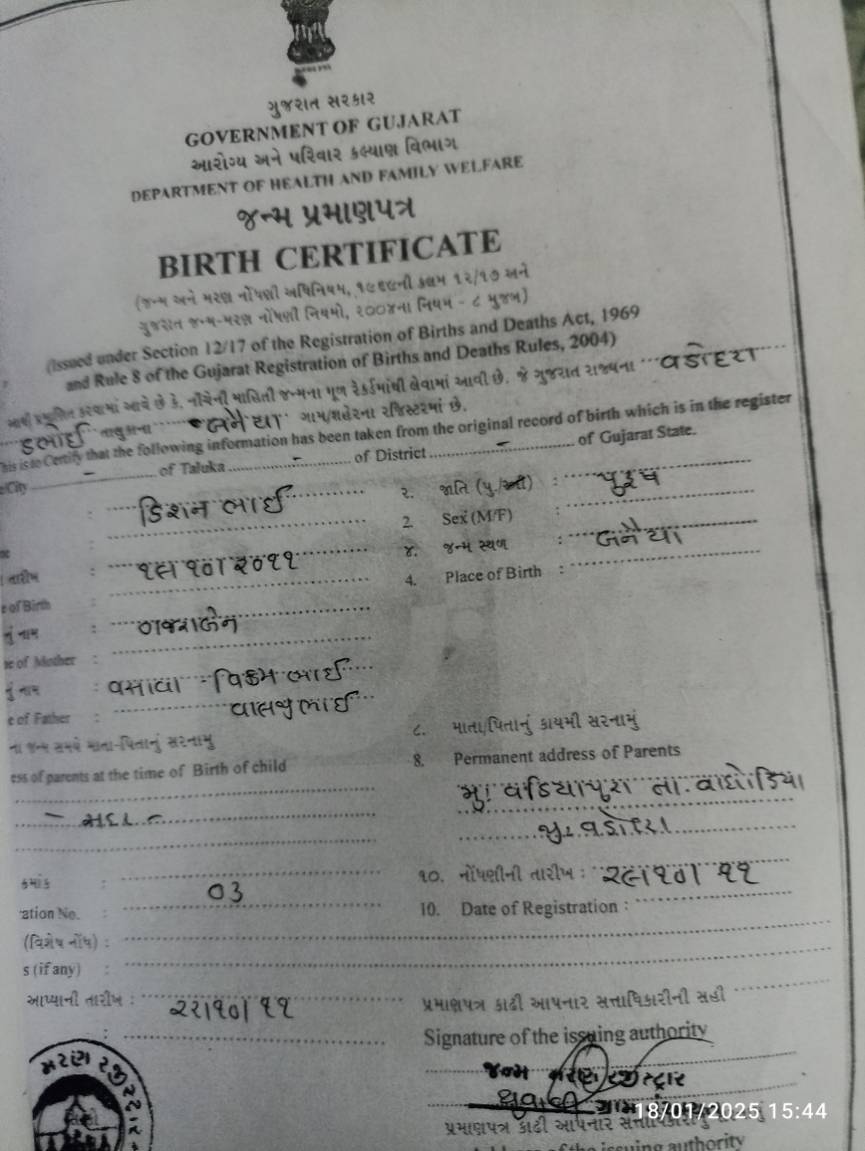 ગુજરાત સરકાર
GOVERNMENT OF GUJARAT
આરોગ્ય અને પરિવાર કલ્યાણ વિભાગ
DEPARTMENT OF HEALTH AND FAMILY WELFARE
જન્મ પ્રમાણપત્ર
BIRTH CERTIFICATE
(જન્મ અને મરણ નોંધણી અધિનિયમ, ૧૯૬૯ની કલમ ૧૨/૧૭ અને
ગુજરાત જન્મ-મરણ નોંધણી નિયમો, ૨૦૦૪ના નિયમ - ૮ મુજબ)
(Issued under Section 12/17 of the Registration of Births and Deaths Act, 1969
and Rule 8 of the Gujarat Registration of Births and Deaths Rules, 2004)
આથી પ્રમાણિત કરવામાં આવે છે કે, નીચેની માહિતી જન્મના મૂળ રેકર્ડમાંથી લેવામાં આવી છે. જે ગુજરાત રાજ્યના વડોદરા
ડભોઈ તાલુકાના બનૈયા ગામ/શહેરના રજિસ્ટરમાં છે.
This is to Certify that the following information has been taken from the original record of birth which is in the register
e/City - of Taluka - of District - of Gujarat State.
: કિશન ભાઈ ૨. જાતિ (પુ./સ્ત્રી) : પુરૂષ
2. Sex (M/F) :
તારીખ : ૧૯।૧૦।૨૦૧૧ ૪. જન્મ સ્થળ : બનૈયા
e of Birth : 4. Place of Birth :
નું નામ :
e of Mother :
નું નામ : વસાવા વિક્રમભાઈ
e of Father : વાલજીભાઈ
ના જન્મ સમયે માતા-પિતાનું સરનામું ૮. માતા/પિતાનું કાયમી સરનામું
ess of parents at the time of Birth of child 8. Permanent address of Parents
મુ। વડિયાપુરા તા. વાઘોડિયા
- સદર - જી. વડોદરા
ક્રમાંક : ૧૦. નોંધણીની તારીખ : ૨૯।૧૦। ૧૧
ration No. : 03 10. Date of Registration :
(વિશેષ નોંધ) :
s (if any) :
આપ્યાની તારીખ : ૨૨।૧૦। ૧૧ પ્રમાણપત્ર કાઢી આપનાર સત્તાધિકારીની સહી
: Signature of the issuing authority
જન્મ મરણ રજીસ્ટ્રાર
મરણ રજીસ્ટ્રાર
18/01/2025 15:44
પ્રમાણપત્ર કાઢી આપનાર
of the issuing authority